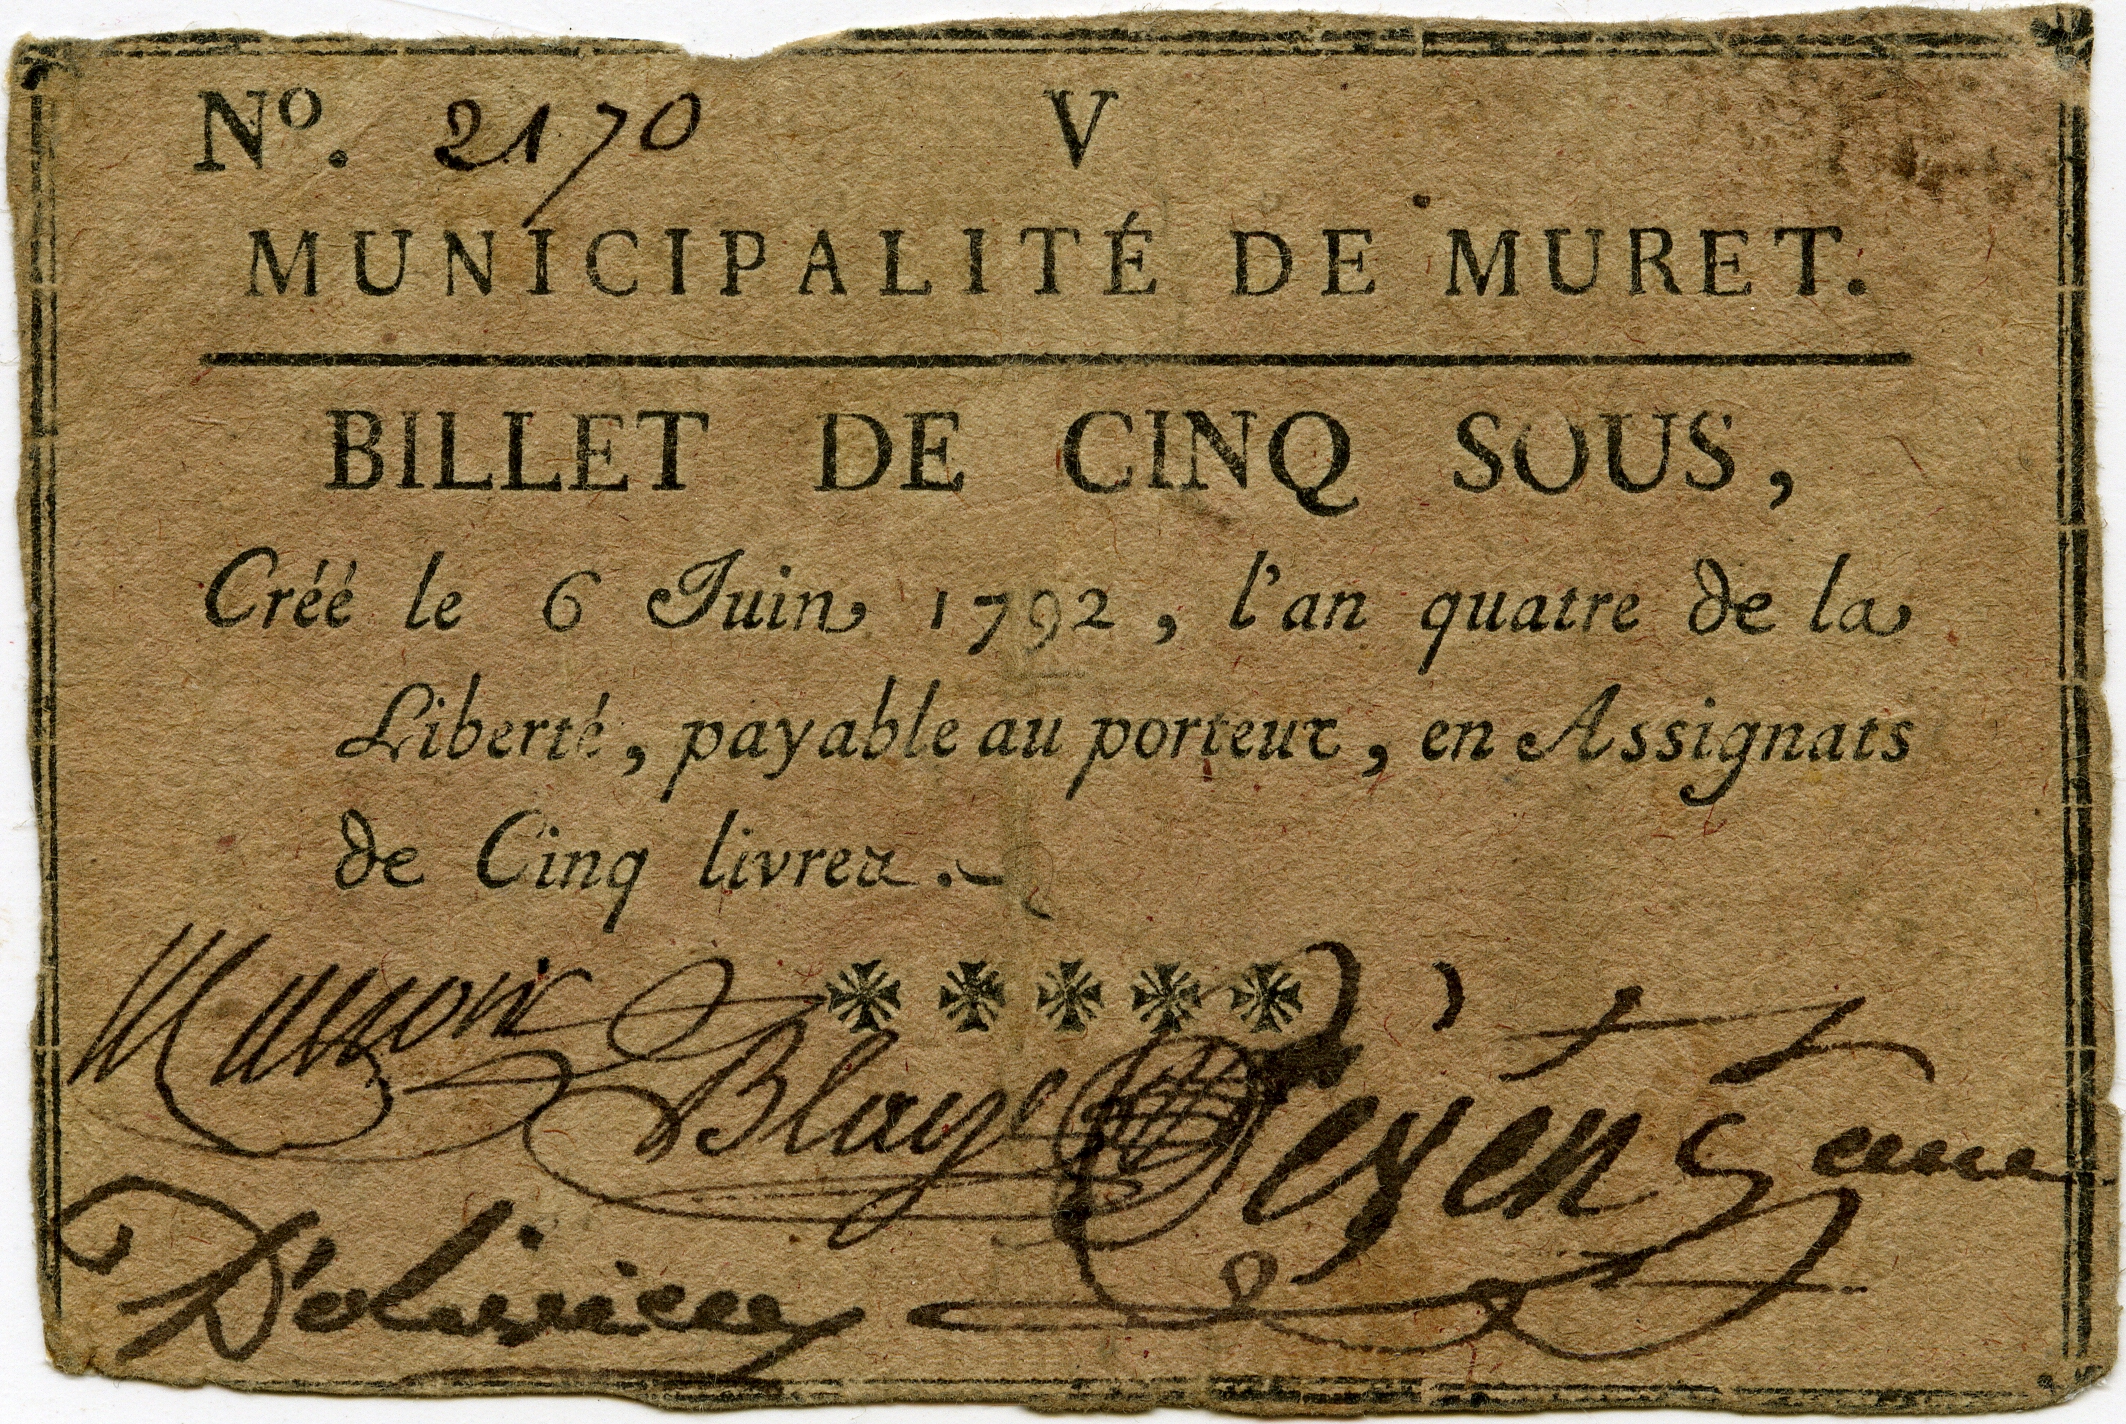 Nº. 2170 V
MUNICIPALITÉ DE MURET.
BILLET DE CINQ SOUS,
Créé le 6 Juin 1792, l'an quatre de la
Liberté, payable au porteur, en Assignats
de Cinq livres.
Blaye